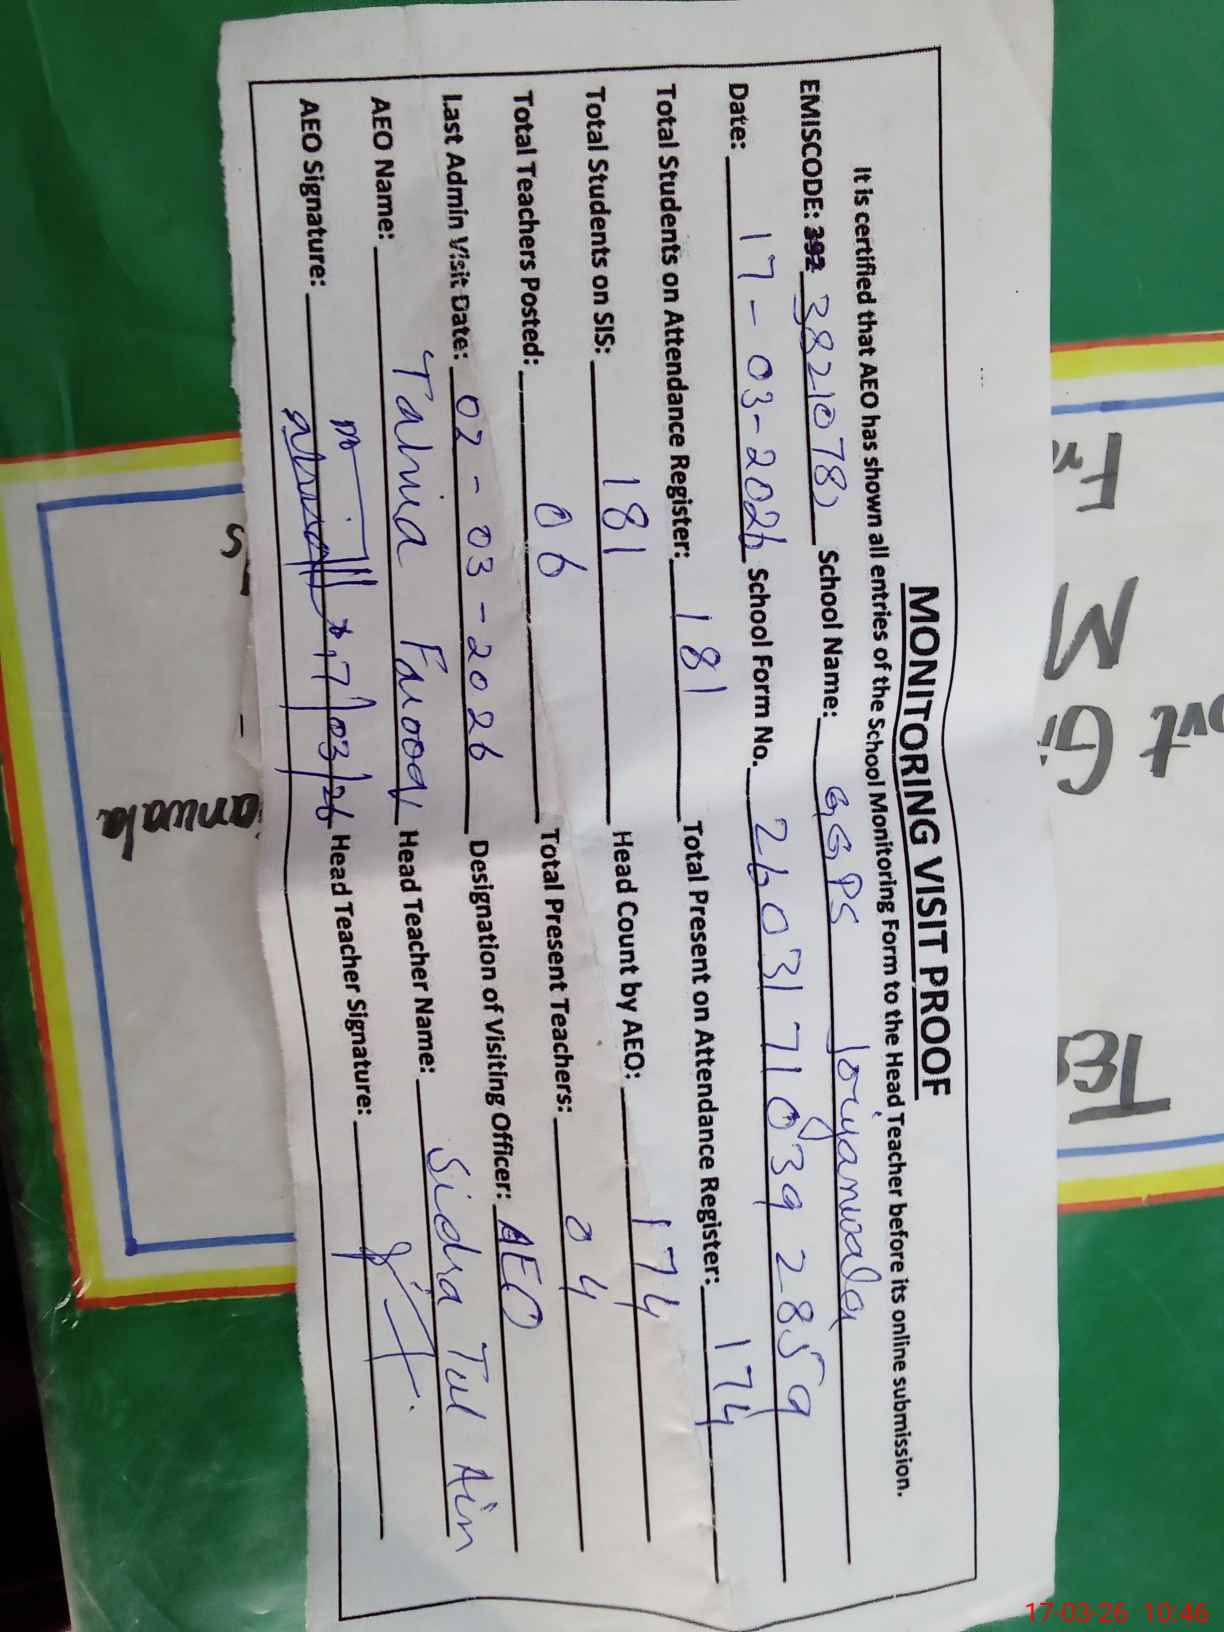 MONITORING VISIT PROOF
It is certified that AEO has shown all entries of the School Monitoring Form to the Head Teacher before its online submission.
EMISCODE: 392 38210780 School Name: GGPS Joiyanwala
Date: 17-03-2026 School Form No. 26031710392859
Total Students on Attendance Register: 181 Total Present on Attendance Register: 174
Total Students on SIS: 181 Head Count by AEO: 174
Total Teachers Posted: 06 Total Present Teachers: 04
Last Admin Visit Date: 02-03-2026 Designation of Visiting Officer: AEO
AEO Name: Tahria Farooq Head Teacher Name: Sidra Tul Ain
AEO Signature: 17/03/26 Head Teacher Signature:
anwala
17-03-26 10:46